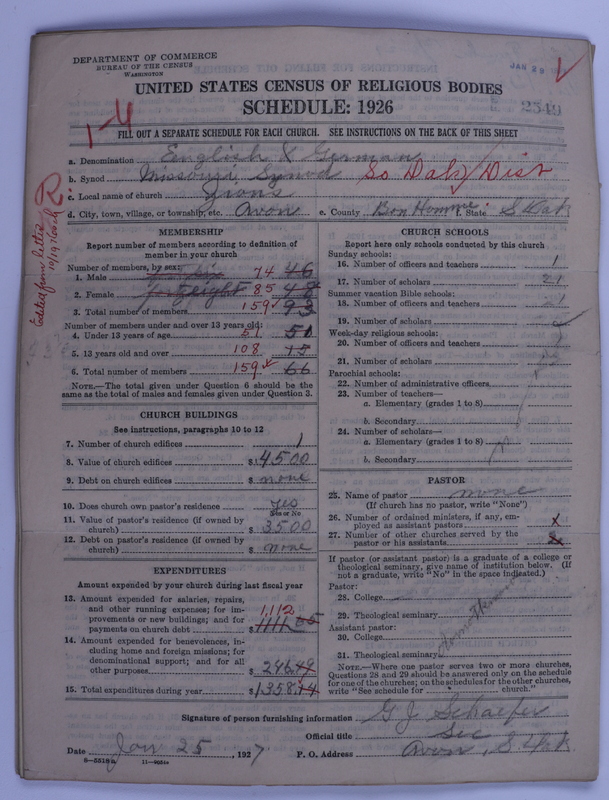 DEPARTMENT OF COMMERCE
BUREAU OF THE CENSUS
WASHINGTON
JAN 29
UNITED STATES CENSUS OF RELIGIOUS BODIES
SCHEDULE: 1926
2549
1-4
FILL OUT A SEPARATE SCHEDULE FOR EACH CHURCH. SEE INSTRUCTIONS ON THE BACK OF THIS SHEET
a. Denomination English & German
b. Synod Missouri Synod So Dak Dist
c. Local name of church Zions
d. City, town, village, or township, etc. Avon e. County Bon Homme f. State S Dak
Edited from letter
MEMBERSHIP
Report number of members according to definition of
member in your church
Number of members, by sex:
1. Male 74 46
2. Female forty eight 85 48
3. Total number of members 159 93
Number of members under and over 13 years old:
4. Under 13 years of age 51 51
5. 13 years old and over 108 15
6. Total number of members 159 66
NOTE.—The total given under Question 6 should be the
same as the total of males and females given under Question 3.
CHURCH BUILDINGS
See instructions, paragraphs 10 to 12
7. Number of church edifices 1
8. Value of church edifices $4500
9. Debt on church edifices $ none
10. Does church own pastor's residence yes
Yes or No
11. Value of pastor's residence (if owned by
church) $3500
12. Debt on pastor's residence (if owned by
church) $ none
EXPENDITURES
Amount expended by your church during last fiscal year
13. Amount expended for salaries, repairs,
and other running expenses; for im-
provements or new buildings; and for
payments on church debt 1,112 $1111 65
14. Amount expended for benevolences, in-
cluding home and foreign missions; for
denominational support; and for all
other purposes $246.49
15. Total expenditures during year $1358.14
CHURCH SCHOOLS
Report here only schools conducted by this church
Sunday schools:
16. Number of officers and teachers 1
17. Number of scholars 21
Summer vacation Bible schools:
18. Number of officers and teachers
19. Number of scholars
Week-day religious schools:
20. Number of officers and teachers
21. Number of scholars
Parochial schools:
22. Number of administrative officers
23. Number of teachers—
a. Elementary (grades 1 to 8)
b. Secondary
24. Number of scholars—
a. Elementary (grades 1 to 8)
b. Secondary
PASTOR
25. Name of pastor none
(If church has no pastor, write "None")
26. Number of ordained ministers, if any, em-
ployed as assistant pastors x
27. Number of other churches served by the
pastor or his assistants
If pastor (or assistant pastor) is a graduate of a college or
theological seminary, give name of institution below. (If
not a graduate, write "No" in the space indicated.)
Pastor:
28. College
29. Theological seminary
Assistant pastor:
30. College
31. Theological seminary
NOTE.—Where one pastor serves two or more churches,
Questions 28 and 29 should be answered only on the schedule
for one of the churches; on the schedules for the other churches,
write "See schedule for church."
Signature of person furnishing information G J Schaefer
Official title Sec
Date Jan 25, 1927 P. O. Address Avon, S Dak
8—5518a 11—9054a